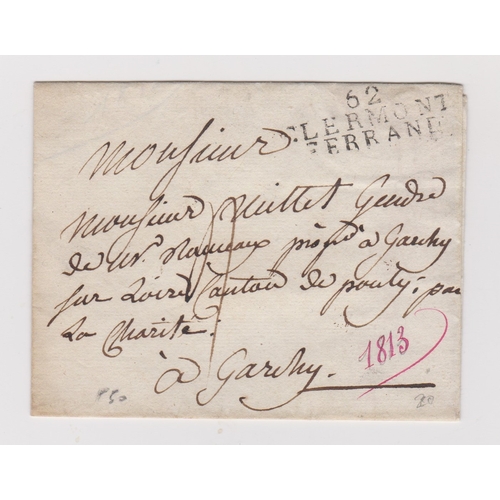 62
CLERMONT
FERRAND
Monsieur
Monsieur Millet Gendre
de Mr. Rameaux à Garchy
sur Loire Canton de pouly, par
La Charité.
à Garchy.
1813